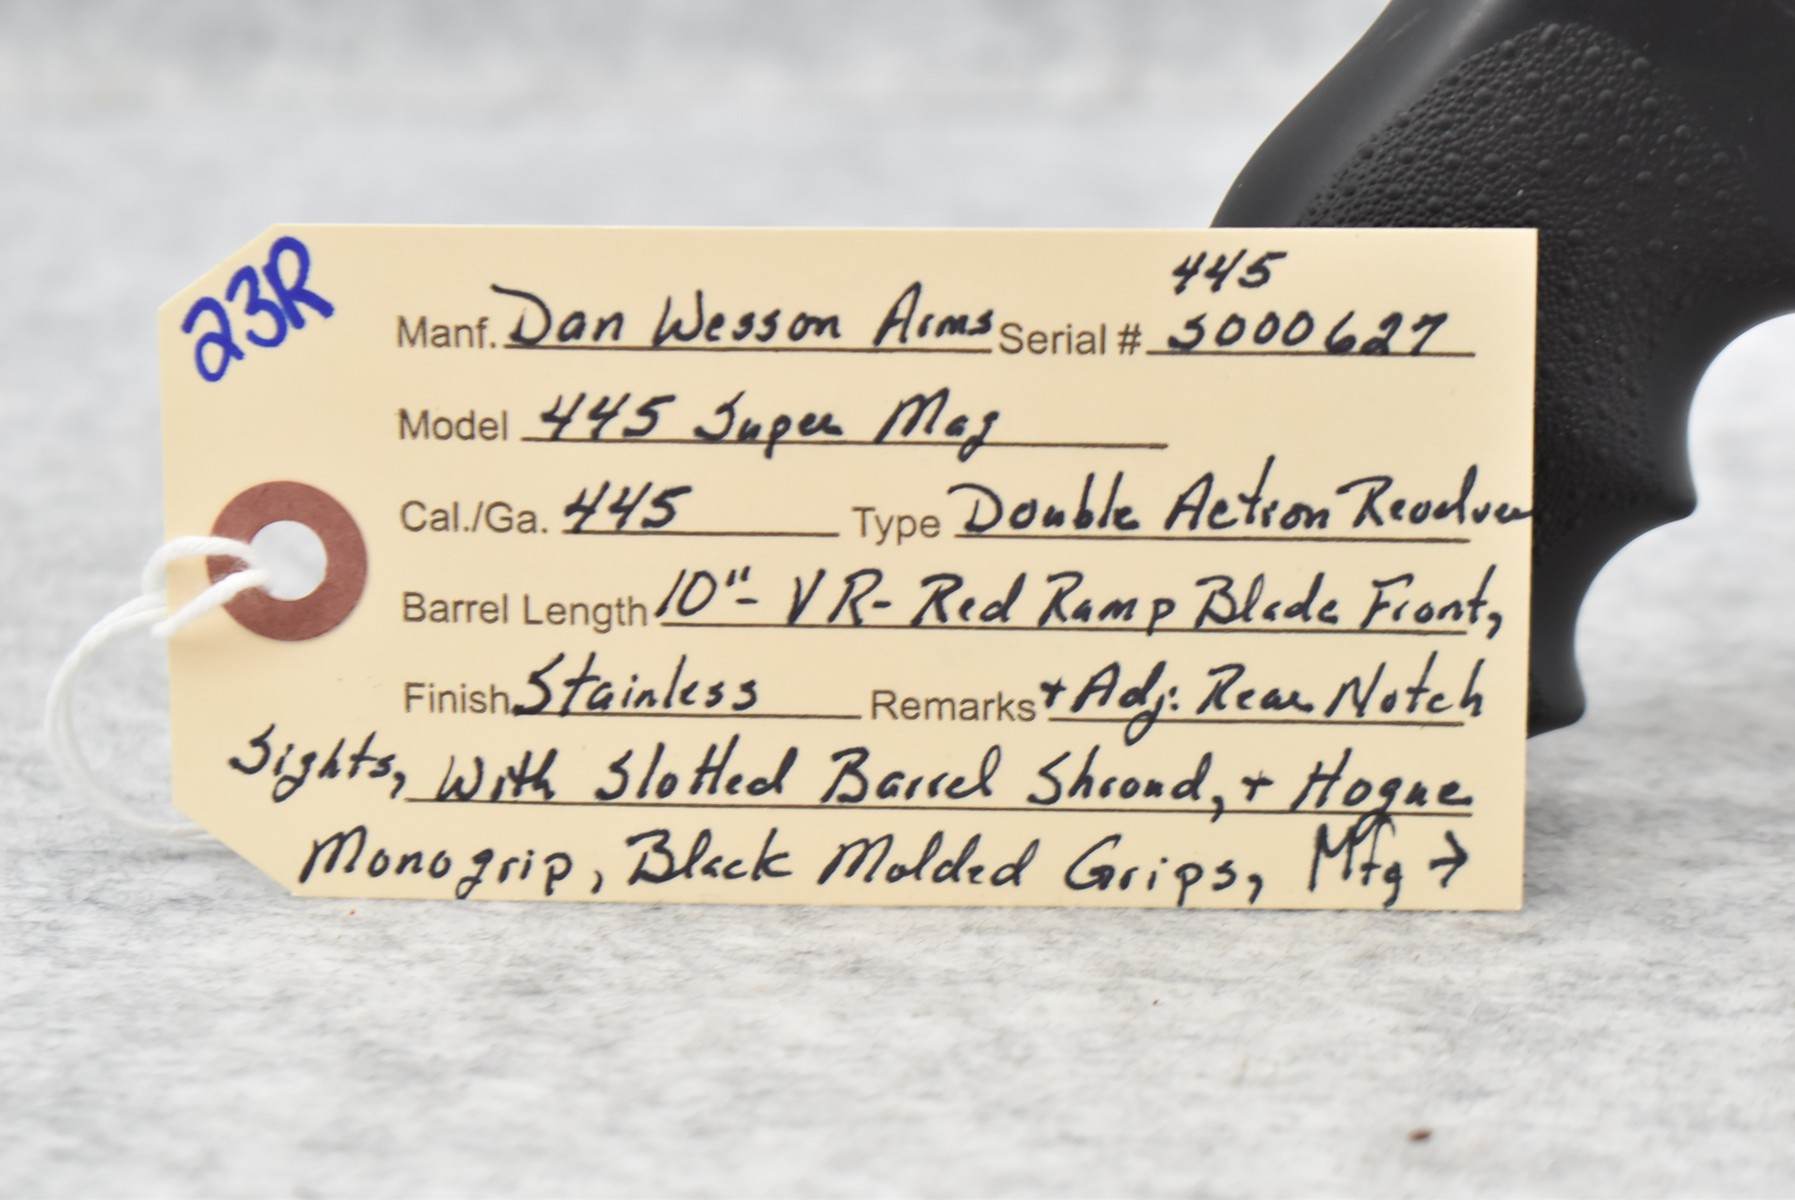 23R
445
Manf. Dan Wesson Arms Serial # S000627
Model 445 Super Mag
Cal./Ga. 445 Type Double Action Revolver
Barrel Length 10"- VR- Red Ramp Blade Front,
Finish Stainless Remarks + Adj. Rear Notch
Sights, With Slotted Barrel Shroud, + Hogue
Monogrip, Black Molded Grips, Mfg →